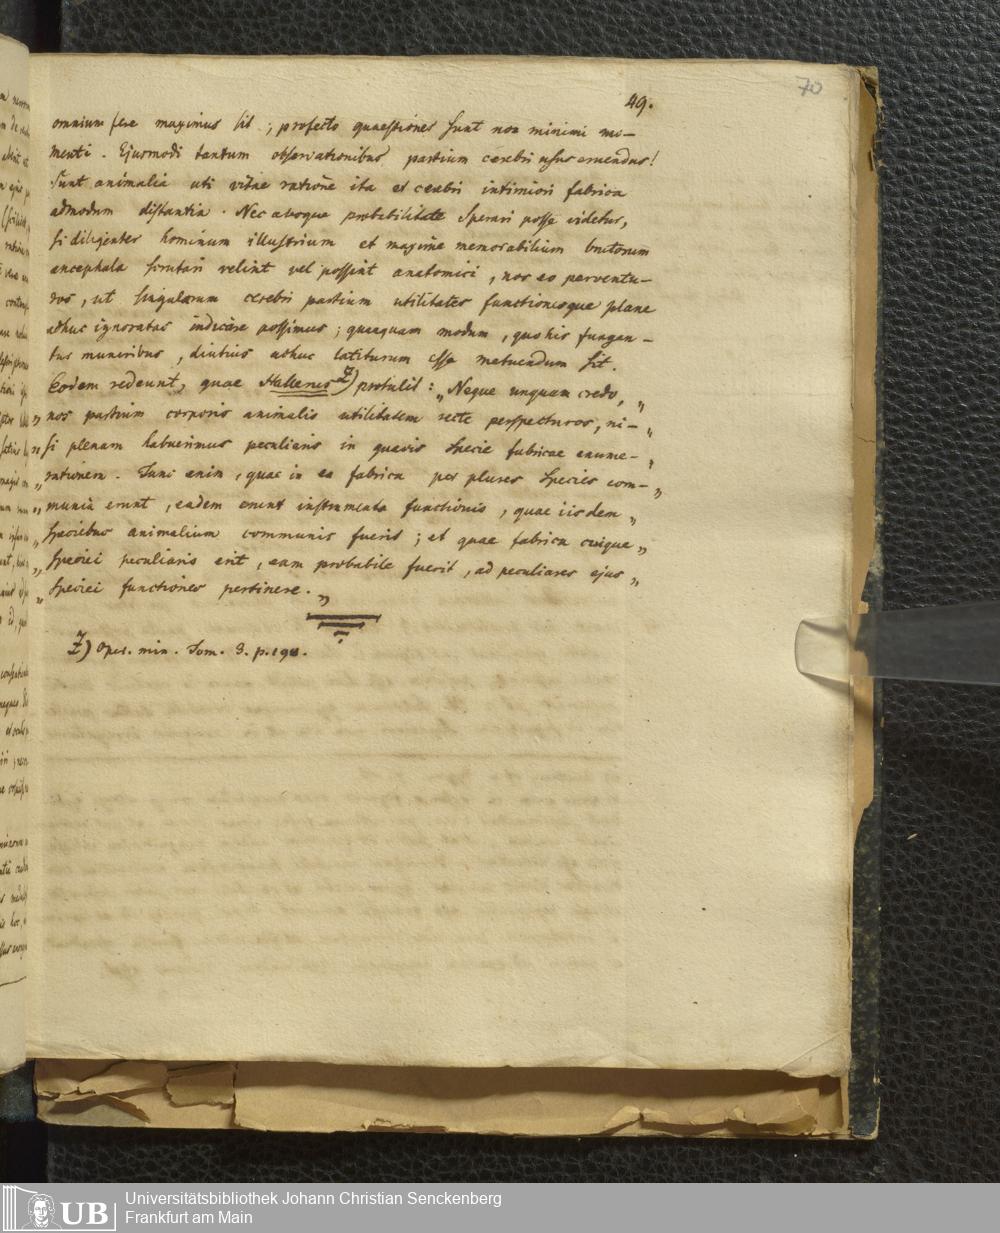 70
49.
omnium fere maximus sit ; profecto quaestiones sunt non minimi mo-
menti. Ejusmodi tantum observationibus partium cerebri usus eruendus!
Sunt animalia uti vitae ratione ita et cerebri intimiori fabrica
admodum distantia. Nec absque probabilitate sperari posse videtur,
si diligenter hominum illustrium et maxime memorabilium brutorum
encephala scrutari velint vel possint anatomici, nos eo perventu-
ros, ut singularum cerebri partium utilitates functionesque plane
adhuc ignoratas indicare possimus; quanquam modum, quo his fungan-
tur muneribus, diutius adhuc latiturum esse metuendum sit.
Eodem redeunt, quae Hallerus Z) protulit: „Neque unquam credo, „
„ nos partium corporis animalis utilitatem recte perspecturos, ni- „
„ si plenam habuerimus peculiaris in quavis specie fabricae enume- „
„ rationem. Tunc enim, quae in ea fabrica per plures species com- „
„ munia erunt, eadem erunt instrumenta functionis, quae iisdem „
„ speciebus animalium communis fuerit; et quae fabrica cuique „
„ speciei peculiaris erit, eam probabile fuerit, ad peculiares ejus „
„ speciei functiones pertinere. „
Z) Oper. min. Tom. 3. p. 191.
UB
Universitätsbibliothek Johann Christian Senckenberg
Frankfurt am Main